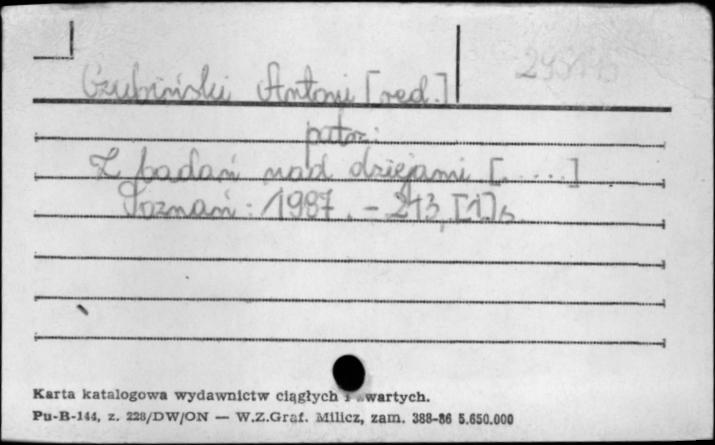 Czubiński Antoni [red.]
patrz:
Z badań nad dziejami [.....]
Poznań: 1987. - 213, [1] s.
Karta katalogowa wydawnictw ciągłych i zwartych.
Pu-B-144, z. 228/DW/ON — W.Z.Graf. Milicz, zam. 388-86 5.650.000